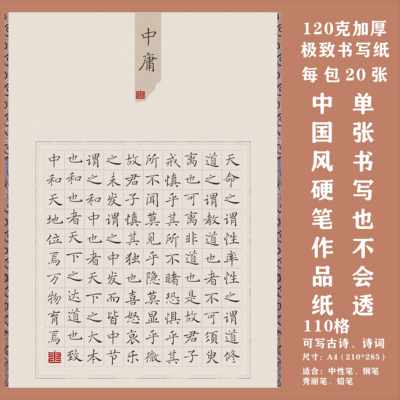 中庸
天命之谓性率性之谓道修
道之谓教道也者不可须臾
离也可离非道也是故君子
戒慎乎其所不睹恐惧乎其
所不闻莫见乎隐莫显乎微
故君子慎其独也喜怒哀乐
之未发谓之中发而皆中节
谓之和中也者天下之大本
也和也者天下之达道也致
中和天地位焉万物育焉
120克加厚
极致书写纸
每包20张
单张书写也不会透
中国风硬笔作品纸
110格
可写古诗、诗词
尺寸：A4（210*285）
适合：中性笔、钢笔
秀丽笔、铅笔